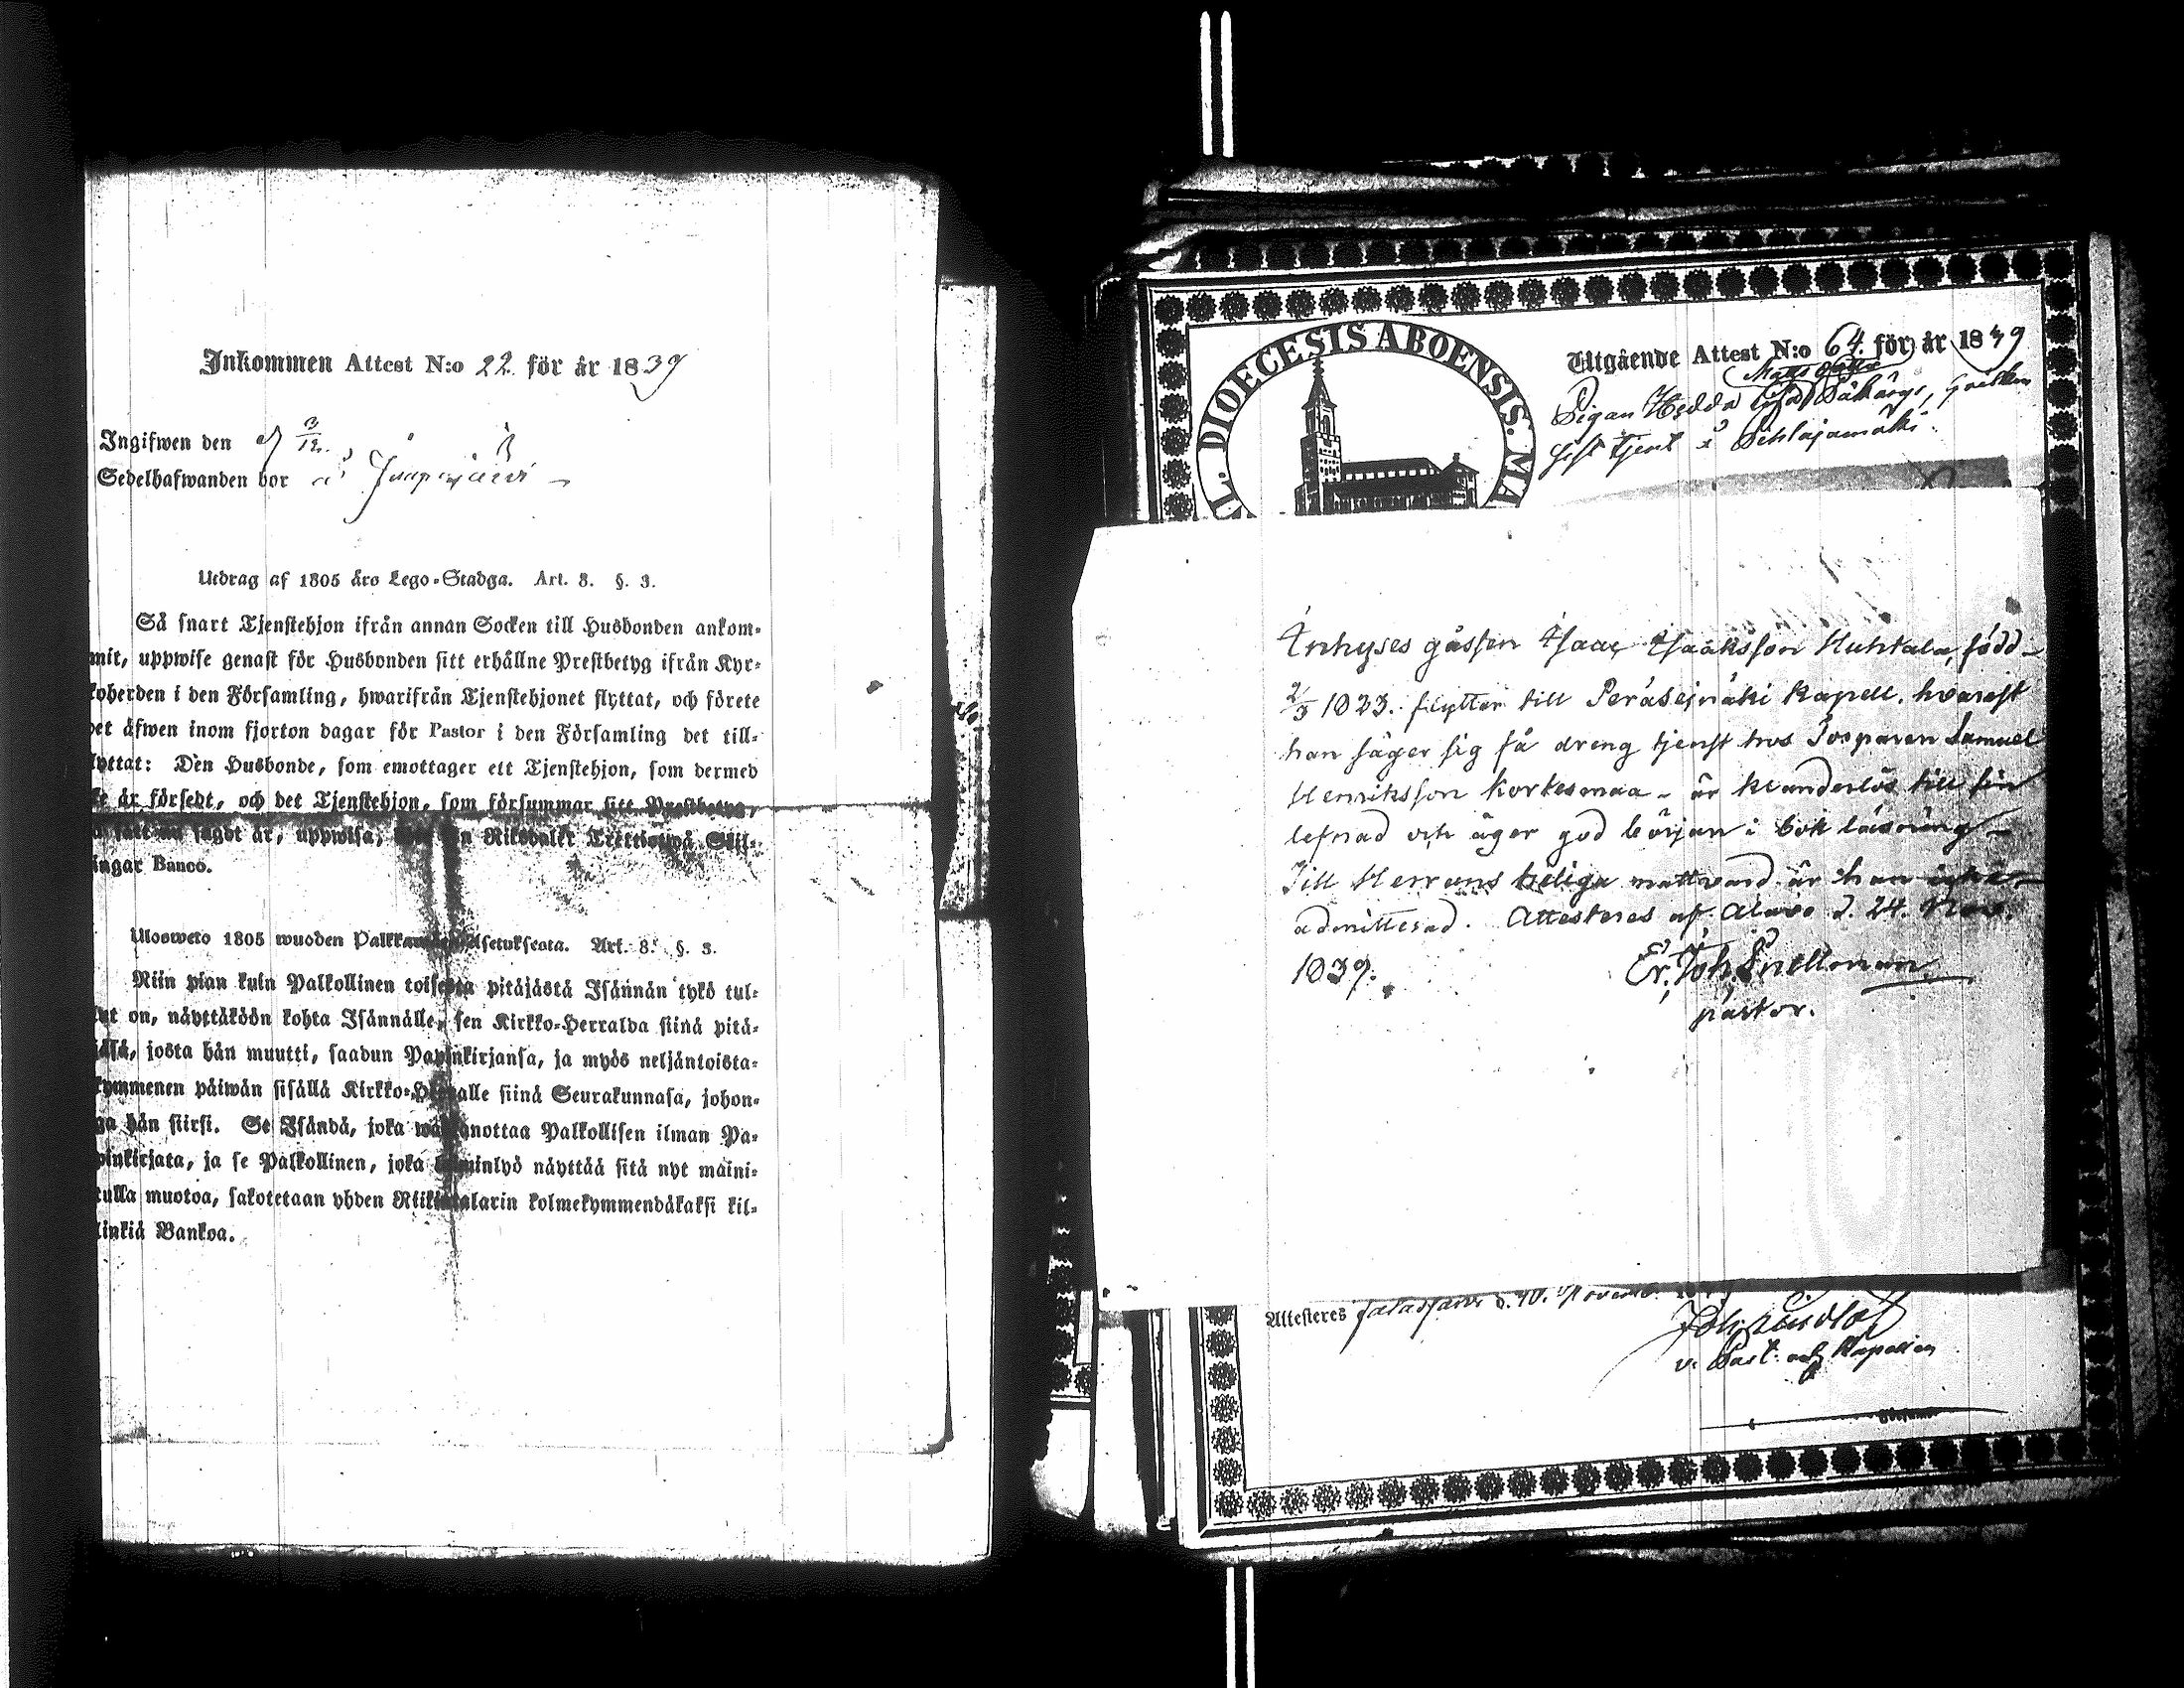 Inkommen Attest N:o 22. för år 1839
Ingifwen den 3/12.
Sedelhafwanden bor å
Utdrag af 1805 års Lego-Stadga. Art. 8. §. 3.
Så snart Tjenstehjon ifrån annan Socken till Husbonden ankom-
mit, uppwise genast för Husbonden sitt erhållne Prestbetyg ifrån Kyr-
koherden i den Församling, hwarifrån Tjenstehjonet flyttat, och förete
det äfwen inom fjorton dagar för Pastor i den Församling det till-
flyttat: Den Husbonde, som emottager ett Tjenstehjon, som dermed
är försedt, och det Tjenstehjon, som försummar sitt Prestbetyg,
sagdt är, uppwisa, Riksdaler Skil-
lingar Banco.
Ulosweto 1805 wuoden Asetuksesta. Art. 8. §. 3.
Niin pian kuin Palkollinen toisesta pitäjästä Isännän tykö tul-
lut on, näyttäköön kohta Isännälle, sen Kirkko-Herralda siinä pitä-
jäsä, josta hän muutti, saadun Papinkirjansa, ja myös neljäntoista-
kymmenen päiwän sisällä Kirkko-Herralle siinä Seurakunnasa, johon-
ga hän siirsi. Se Isändä, joka wastanottaa Palkollisen ilman Pa-
pinkirjata, ja se Palkollinen, joka laiminlyö näyttää sitä nyt maini-
tulla muotoa, sakotetaan yhden Riikintalarin kolmekymmendäkaksi kil-
linkiä Bankoa.
L. DIOECESIS ABOENSIS. MA
Utgående Attest N:o 64. för år 1839
Pigan Hedda
sist tjent å
Inhyses gåssen Isaac Isaaksson Huhtala, född
2/3 1823. flyttar till Peräseinäki Kapell. hvarest
han säger sig få dreng tjenst hos Samuel
Henriksson Korkesmaa - är klanderlös till sin
lefnad och äger god början i bok läsning -
Till Herrans heliga nattvard är han icke
admitterad. Attesteres af Alavo d. 24. Nov.
1839. Er. Joh. Snellman.
pastor.
Attesteres Jalasjärvi d. Novemb.
v. Past. och Kapellan